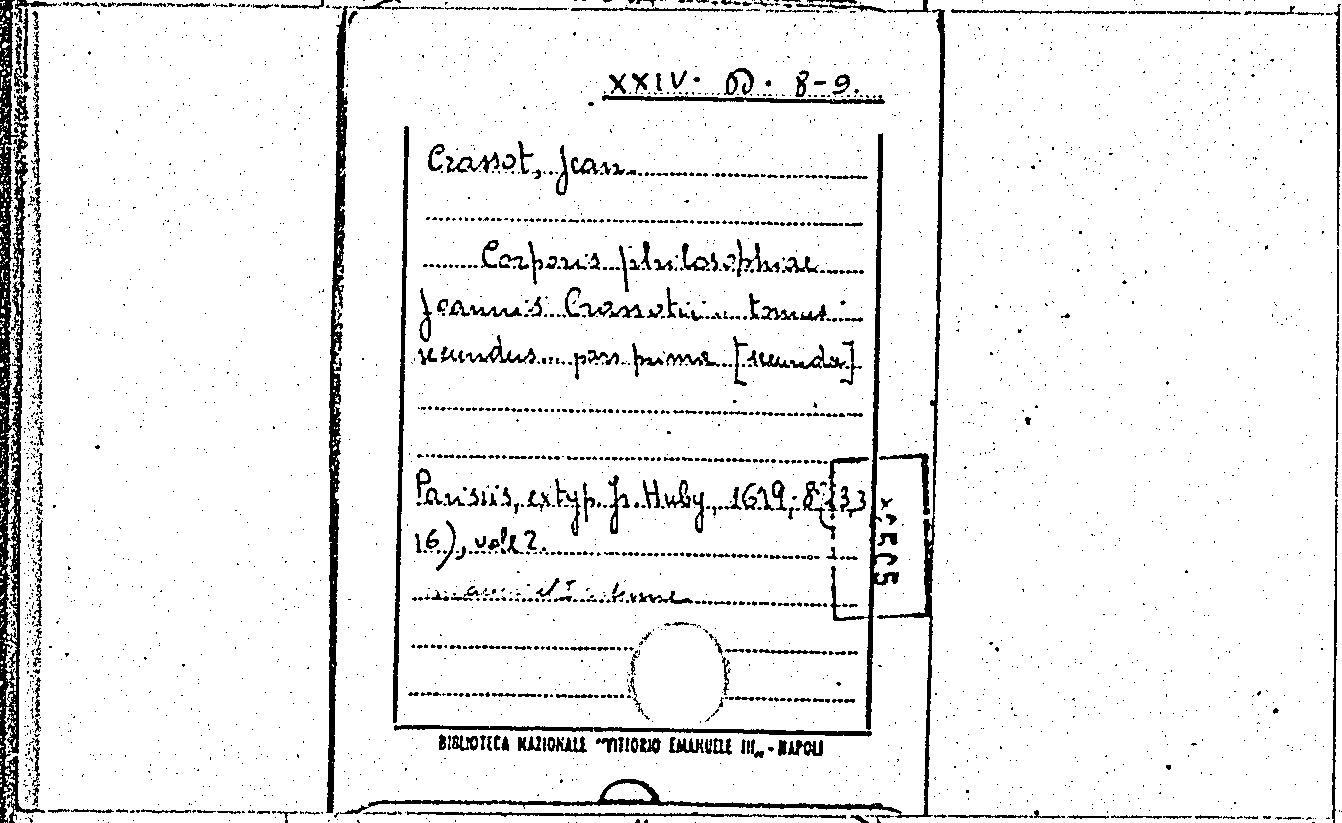 XXIV. D. 8-9.
Crassot, Jean.
Corporis philosophiae
Joannis Crassotii... tomus
secundus... pars prima [secunda]
Parisiis, ex typ. Fr. Huby, 1619; 8° (3,3
16), vol. 2.
BIBLIOTECA NAZIONALE "VITTORIO EMANUELE III„ - NAPOLI